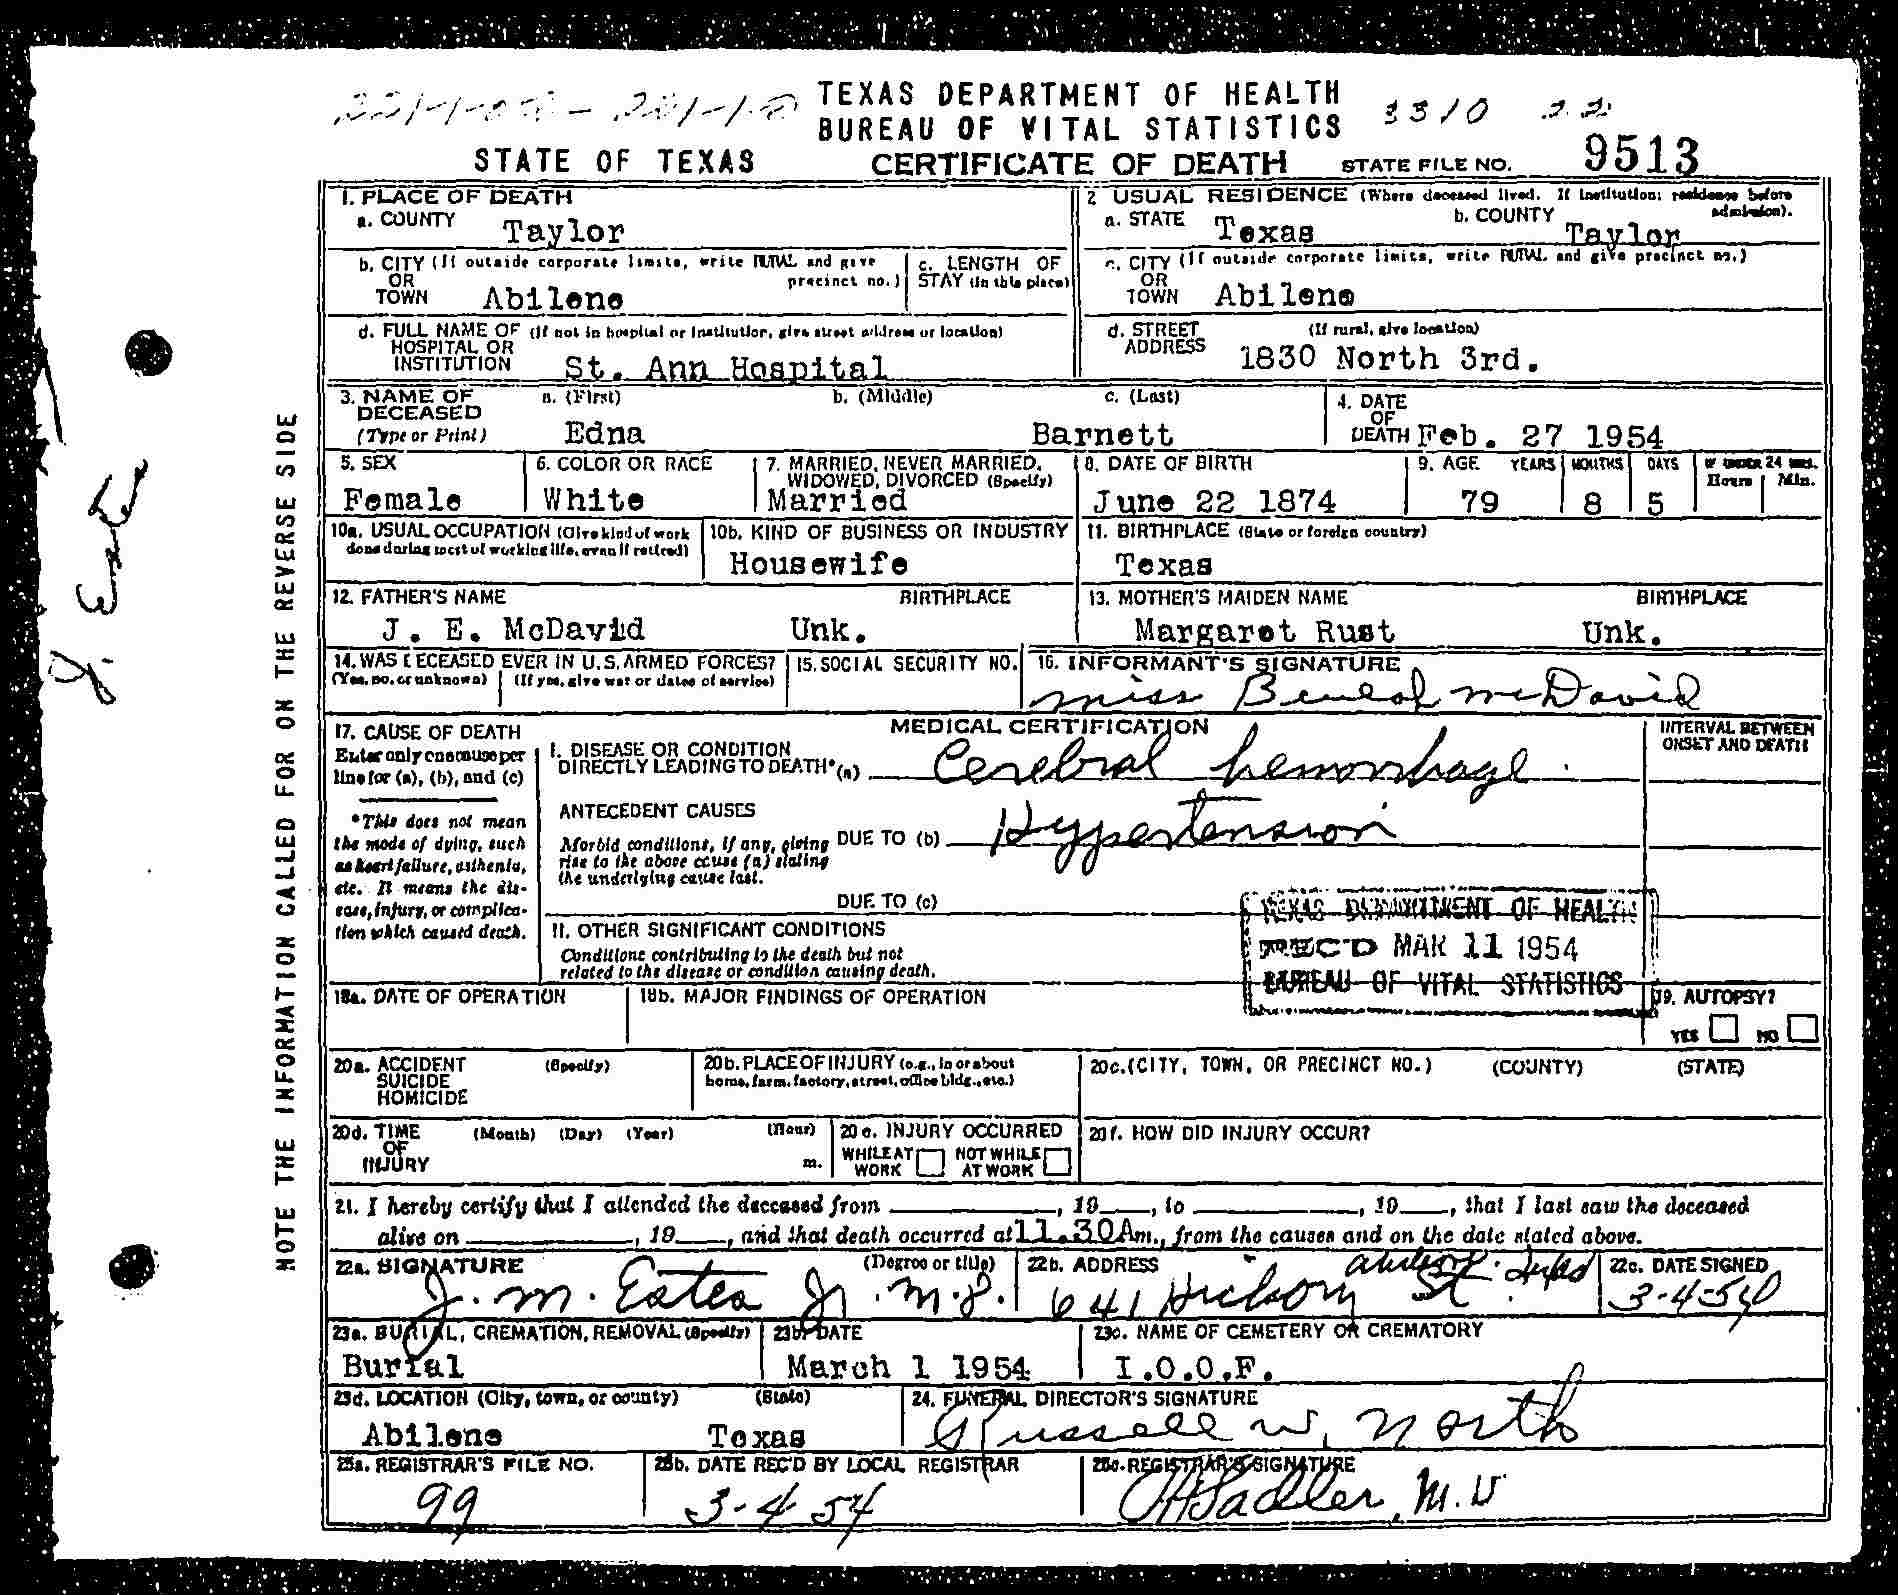 TEXAS DEPARTMENT OF HEALTH
3310 22
BUREAU OF VITAL STATISTICS
STATE OF TEXAS CERTIFICATE OF DEATH STATE FILE NO. 9513
1. PLACE OF DEATH
a. COUNTY Taylor
2 USUAL RESIDENCE (Where deceased lived. If institution: residence before admission).
a. STATE Texas b. COUNTY Taylor
b. CITY (If outside corporate limits, write RURAL and give precinct no.)
OR
TOWN Abilene
c. LENGTH OF
STAY (in this place)
c. CITY (If outside corporate limits, write RURAL and give precinct no.)
OR
TOWN Abilene
d. FULL NAME OF (If not in hospital or institution, give street address or location)
HOSPITAL OR
INSTITUTION St. Ann Hospital
d. STREET (If rural, give location)
ADDRESS 1830 North 3rd.
3. NAME OF DECEASED
(Type or Print)
a. (First) b. (Middle) c. (Last)
Edna Barnett
4. DATE
OF
DEATH Feb. 27 1954
5. SEX
Female
6. COLOR OR RACE
White
7. MARRIED, NEVER MARRIED,
WIDOWED, DIVORCED (Specify)
Married
8. DATE OF BIRTH
June 22 1874
9. AGE YEARS MONTHS DAYS IF UNDER 24 HRS.
Hours Min.
79 8 5
10a. USUAL OCCUPATION (Give kind of work
done during most of working life, even if retired)
10b. KIND OF BUSINESS OR INDUSTRY
Housewife
11. BIRTHPLACE (State or foreign country)
Texas
12. FATHER'S NAME BIRTHPLACE
J. E. McDavid Unk.
13. MOTHER'S MAIDEN NAME BIRTHPLACE
Margaret Rust Unk.
14. WAS DECEASED EVER IN U.S. ARMED FORCES?
(Yes, no, or unknown) (If yes, give war or dates of service)
15. SOCIAL SECURITY NO.
16. INFORMANT'S SIGNATURE
Miss Beulah McDavid
MEDICAL CERTIFICATION
17. CAUSE OF DEATH
Enter only one cause per
line for (a), (b), and (c)
*This does not mean
the mode of dying, such
as heart failure, asthenia,
etc. It means the dis-
ease, injury, or complica-
tion which caused death.
I. DISEASE OR CONDITION
DIRECTLY LEADING TO DEATH* (a) Cerebral hemorrhage
ANTECEDENT CAUSES
Morbid conditions, if any, giving
rise to the above cause (a) stating
the underlying cause last.
DUE TO (b) Hypertension
DUE TO (c)
INTERVAL BETWEEN
ONSET AND DEATH
II. OTHER SIGNIFICANT CONDITIONS
Conditions contributing to the death but not
related to the disease or condition causing death.
TEXAS DEPARTMENT OF HEALTH
REC'D MAR 11 1954
BUREAU OF VITAL STATISTICS
18a. DATE OF OPERATION
18b. MAJOR FINDINGS OF OPERATION
19. AUTOPSY?
YES NO
20a. ACCIDENT (Specify)
SUICIDE
HOMICIDE
20b. PLACE OF INJURY (e.g., in or about
home, farm, factory, street, office bldg., etc.)
20c. (CITY, TOWN, OR PRECINCT NO.) (COUNTY) (STATE)
20d. TIME (Month) (Day) (Year) (Hour)
OF
INJURY m.
20e. INJURY OCCURRED
WHILE AT WORK NOT WHILE AT WORK
20f. HOW DID INJURY OCCUR?
21. I hereby certify that I attended the deceased from , 19 , to , 19 , that I last saw the deceased
alive on , 19 , and that death occurred at 11.30Am., from the causes and on the date stated above.
22a. SIGNATURE (Degree or title)
J. M. Estes Jr. M.D.
22b. ADDRESS
641 Hickory St.
22c. DATE SIGNED
3-4-54
23a. BURIAL, CREMATION, REMOVAL (Specify)
Burial
23b. DATE
March 1 1954
23c. NAME OF CEMETERY OR CREMATORY
I.O.O.F.
23d. LOCATION (City, town, or county) (State)
Abilene Texas
24. FUNERAL DIRECTOR'S SIGNATURE
Russell W. North
25a. REGISTRAR'S FILE NO.
99
25b. DATE REC'D BY LOCAL REGISTRAR
3-4 54
25c. REGISTRAR'S SIGNATURE
Sadler, M.D
NOTE THE INFORMATION CALLED FOR ON THE REVERSE SIDE